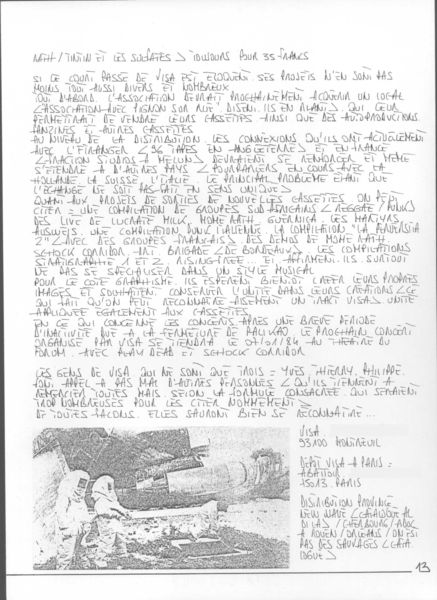 MATH / TINTIN ET LES SUCFATES > TOUJOURS POUR 35 FRANCS
SI CE COURT PASSE DE VISA EST ELOQUENT. SES PROJETS N'EN SONT PAS
MOINS TOUT AUSSI DIVERS ET NOMBREUX
TOUT D'ABORD. L'ASSOCIATION DEVRAIT PROCHAINEMENT ACQUERIR UN LOCAL
<ASSOCIATION AVEC PIGNON SUR RUE. DISENT. ILS EN RIANT>. QUI LEUR
PERMETTRAIT DE VENDRE LEURS CASSETTES AINSI QUE DES AUTOPRODUCTIONS.
FANZINES ET AUTRES CASSETTES
AU NIVEAU DE LA DISTRIBUTION. LES CONNEXIONS QU'ILS ONT ACTUELLEMENT
AVEC L'ETRANGER <96 TAPES EN ANGLETERRE> ET EN FRANCE
<FRACTION STUDIOS A MELUN> DEVRAIENT SE RENFORCER ET MEME
S'ETENDRE A D'AUTRES PAYS <POURPARLERS EN COURS AVEC LA
HOLLANDE. LA SUISSE. L'ITALIE. LE PRINCIPAL PROBLEME ETANT QUE
L'ECHANGE NE SOIT PAS FAIT EN SENS UNIQUE>
QUANT AUX PROJETS DE SORTIES DE NOUVELLES CASSETTES. ON PEUT
CITER = UNE COMPILATION DE GROUPES SUD AFRICAINS <REGGAE / PUNK>
DES LIVE DE LUCRATE MILK. MORE MATH. GUERNICA. LES MARTYRS.
AUSWEIS. UNE COMPILATION PUNK ITALIENNE. LA COMPILATION "LA
2" <AVEC DES GROUPES FRANCAIS>. DES DEMOS DE MORE MATH.
SCHOCK CORRIDOR. BRIGADE <DE BORDEAUX>. LES COMPILATIONS
1 ET 2. RISING FREE. ET ILS. SURTOUT
NE PAS SE SPECIALISER DANS UN STYLE MUSICAL
POUR LE COTE GRAPHISME. ILS ESPERENT BIENTOT CREER LEURS PROPRES
IMAGES ET SOUHAITENT CONSERVER L'UNITE DANS LEURS CREATIONS <CE
QUI FAIT QU'ON PEUT RECONNAITRE AISEMENT UN TRACT VISA> UNITE
APPLIQUEE EGALEMENT AUX CASSETTES
EN CE QUI CONCERNE LES CONCERTS APRES UNE BREVE PERIODE
D'INACTIVITE DUE A LA FERMETURE DE PALIKAO. LE PROCHAIN CONCERT
ORGANISE PAR VISA SE TIENDRA LE 07/01/84. AU THEATRE DU
FORUM. AVEC PLAY DEAD ET SCHOCK CORRIDOR
LES GENS DE VISA QUI NE SONT QUE TROIS = YVES. THIERRY. PHILIPPE.
FONT APPEL A PAS MAL D'AUTRES PERSONNES <QU'ILS TIENNENT A
REMERCIER TOUTES MAIS. SELON LA FORMULE CONSACREE. QUI SERAIENT
TROP NOMBREUSES POUR LES CITER NOMMEMENT>
DE TOUTES FACONS. ELLES SAURONT BIEN SE RECONNAITRE...
VISA
93100 MONTREUIL
DEPOT VISA A PARIS =
ABATTOIR
75013. PARIS
DISTRIBUTION PROVINCE
NEW WAVE <CATALOGUE AL
DILAS / CHERBOURG /
A ROUEN / ORLEANS / ON EST
PAS DES SAUVAGES <CATA
LOGUE>
13